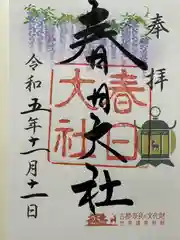 奉拝
春日大社
春日
大社
令和五年十一月十一日
古都奈良の文化財
世界遺産